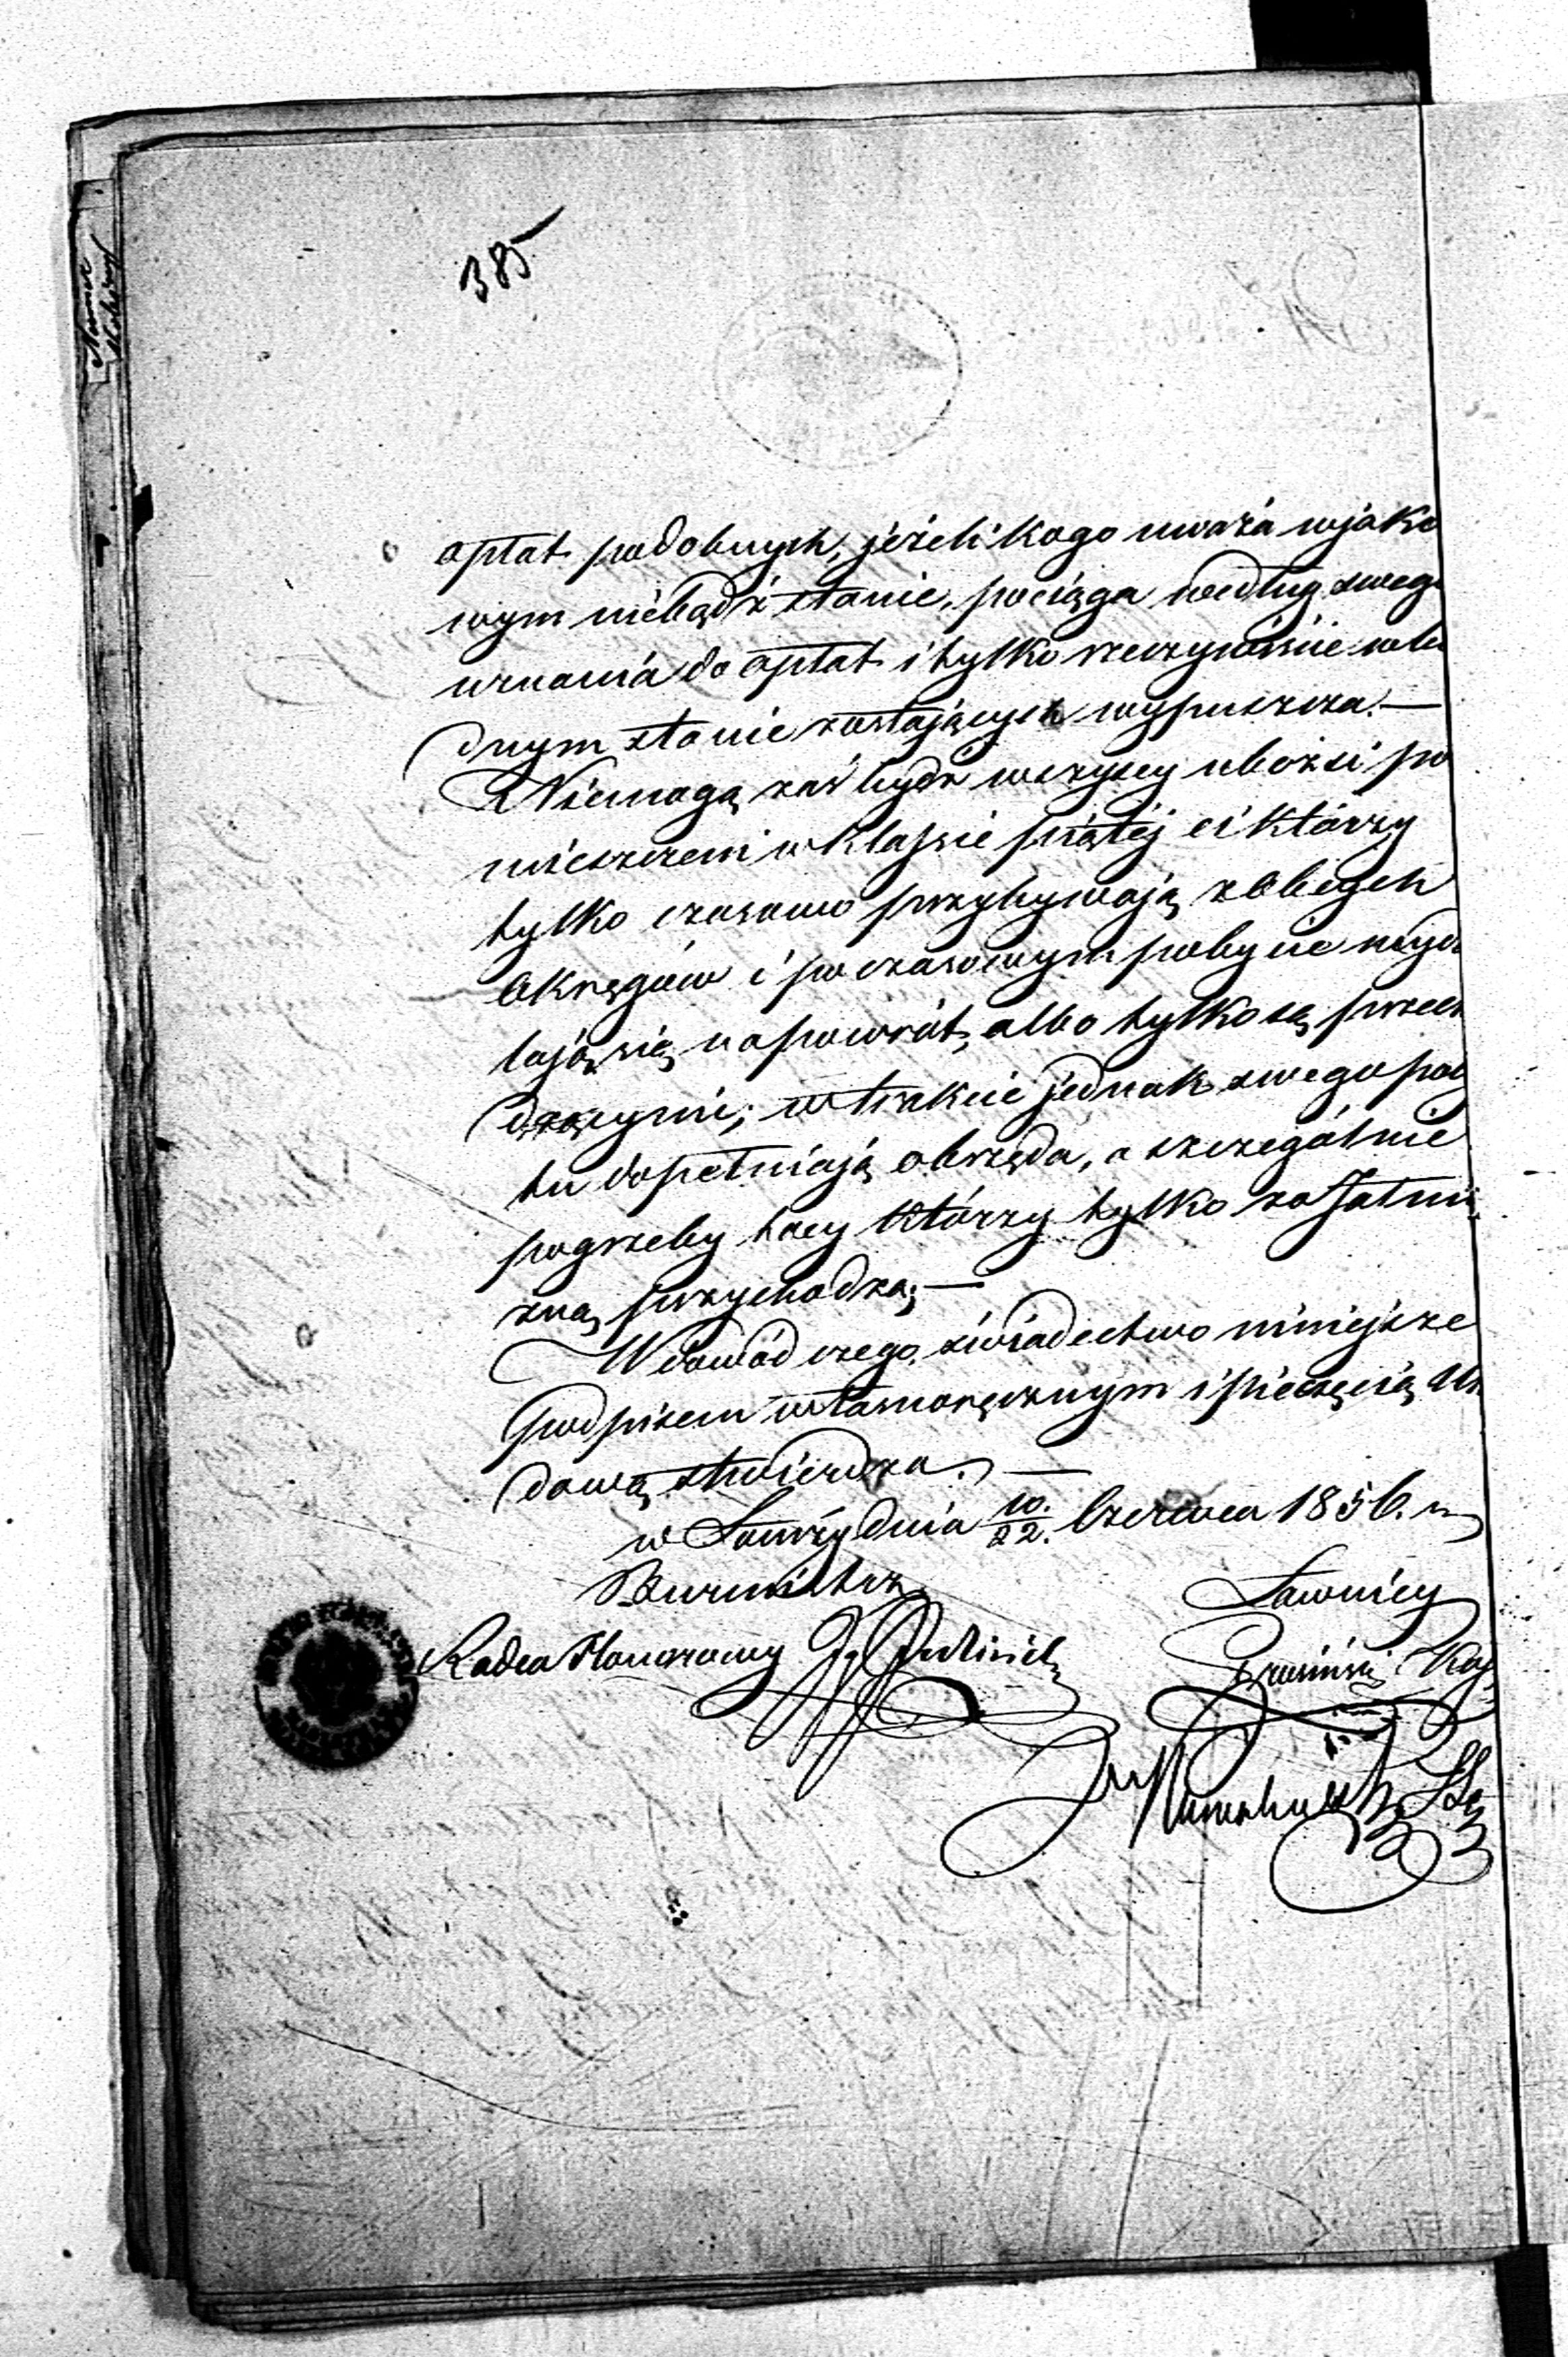 385
opłat podobnych, jeżeli kogo uważa w jako
wym niebądź stanie, pociąga według swego
uznania do opłat i tylko rzeczywiście w bie
dnym stanie zostających wypuszcza. —
Niemogą zaś bydź wszyscy ubożsi po
mieszczeni w klassie piątej ci którzy
tylko czasowo przybywają z obcych
Okręgów i po czasowym pobycie wyda
lają się napowrót, albo tylko są przecho
dzącymi; w trakcie jednak swego poby
tu dopełniają obrzęda, a szczególnie
pogrzeby tacy którzy tylko za Jałmu
żną przychodzą; —
W dowód czego, świadectwo niniejsze
podpisem własnoręcznym i pieczęcią Urzę
dową stwierdza. —
w Łomży dnia 10/22. Czerwca 1856. r.
Burmistrz
Ławnicy
Radca Honorowy